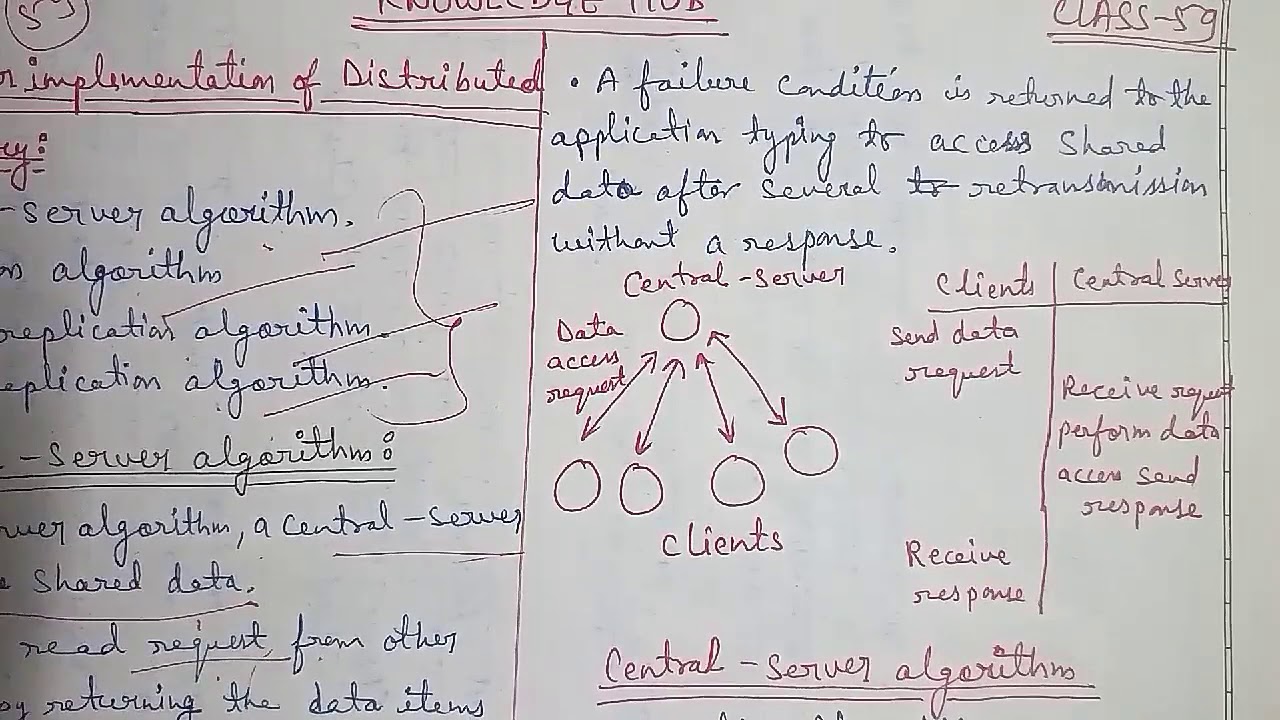 59
KNOWLEDGE HUB
CLASS-59
implementation of Distributed
-Server algorithm.
algorithm
replication algorithm.
eplication algorithm.
-Server algorithm:
rver algorithm, a Central-Server
Shared data.
read request from other
by returning the data items
• A failure condition is returned to the
application typing to access Shared
data after several to retransmission
without a response.
Central-Server
Data
access
request
Clients
Clients
Central Server
Send data
request
Receive request
perform data
access send
response
Receive
response
Central-Server algorithm